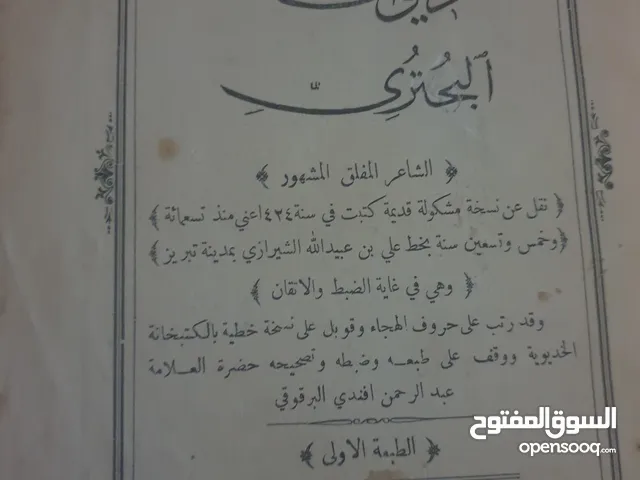 ديوان
البحتري
﴿ الشاعر المفلق المشهور ﴾
﴿ نقل عن نسخة مشكولة قديمة كتبت في سنة ٤٢٤ اعني منذ تسعمائة ﴾
﴿ وخمس وتسعين سنة بخط علي بن عبيدالله الشيرازي بمدينة تبريز ﴾
﴿ وهي في غاية الضبط والاتقان ﴾
وقد رتب على حروف الهجاء وقوبل على نسخة خطية بالكتبخانة
الخديوية ووقف على طبعه وضبطه وتصحيحه حضرة العلامة
عبد الرحمن افندي البرقوقي
﴿ الطبعة الاولى ﴾
السوق المفتوح
opensooq.com